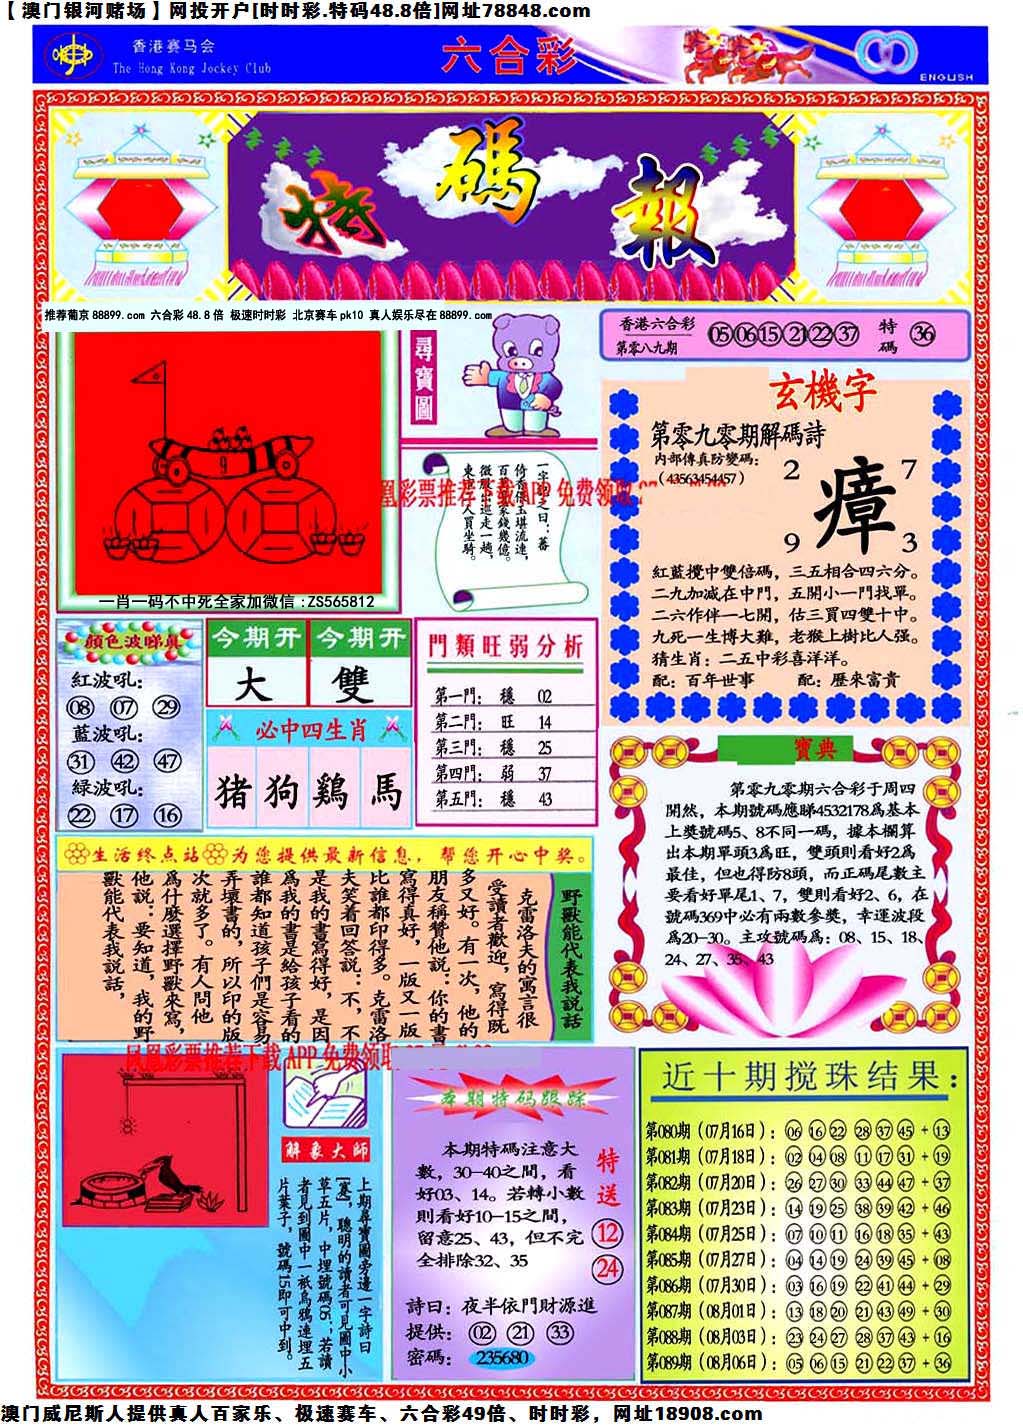 【澳门银河赌场】网投开户[时时彩.特码48.8倍]网址78848.com
香港赛马会
The Hong Kong Jockey Club
六合彩
ENGLISH
特碼報
推荐葡京88899.com 六合彩48.8倍 极速时时彩 北京赛车pk10 真人娱乐尽在88899.com
尋寶圖
9
一肖一码不中死全家加微信:ZS565812
一字記之曰：蕃
倚香偎玉堪流連，
百萬家錢幾億。
微服出巡走一趟，
東人買坐騎。
香港六合彩
第零八九期
05 06 15 21 22 37
特碼
36
玄機字
第零九零期解碼詩
内部傳真防變碼：
（43563454457）
2 7
瘴
9 3
紅藍攪中雙倍碼，三五相合四六分。
二九加减在中門，五開小一門找單。
二六作伴一七開，估三買四雙十中。
九死一生博大難，老猴上樹比人强。
猜生肖：二五中彩喜洋洋。
配：百年世事 配：歷來富貴
顏色波睇真
紅波吼：
08 07 29
藍波吼：
31 42 47
緑波吼：
22 17 16
今期开 今期开
大 雙
必中四生肖
猪 狗 鷄 馬
門類旺弱分析
第一門： 穩 02
第二門： 旺 14
第三門： 穩 25
第四門： 弱 37
第五門： 穩 43
寶典
第零九零期六合彩于周四
開然，本期號碼應睇4532178爲基本
上獎號碼5、8不同一碼，據本欄算
出本期單頭3爲旺，雙頭則看好2爲
最佳，但也得防8頭，而正碼尾數主
要看好單尾1、7，雙則看好2、6，在
號碼369中必有兩數參獎，幸運波段
爲20—30。主攻號碼爲：08、15、18、
24、27、35、43
生活终点站 为您提供最新信息，帮您开心中奖。
野獸能代表我說話
克雷洛夫的寓言很
受讀者歡迎，寫得既
多又好。有一次，他的
朋友稱赞他説：你的書
寫得真好，一版又一版
比誰都印得多。克雷洛
夫笑着回答説：不，不
是我的書寫得好，是因
爲我的書是給孩子看的
誰都知道孩子們是容易
弄壞書的，所以印的版
次就多了。有人問他
爲什麽選擇野獸來寫，
他説：要知道，我的野
獸能代表我説話，
解象大師
上期尋寶圖旁邊一字詩曰
，聰明的讀者可見圖中小
草五片，中埋號碼05；若讀
者見到圖中一衹烏鴉連埋五
片葉子，號碼15即可中到。
本期特码跟踪
本期特碼注意大
數，30—40之間，看
好03、14。若轉小數
則看好10—15之間，
留意25、43，但不完
全排除32、35
特送
12
24
詩曰：夜半依門財源進
提供： 02 21 33
密碼： 235680
近十期搅珠结果：
第080期（07月16日）： 06 16 22 28 37 45 + 13
第081期（07月18日）： 02 04 08 11 17 31 + 19
第082期（07月20日）： 26 27 30 33 44 47 + 37
第083期（07月23日）： 14 19 25 38 39 42 + 46
第084期（07月25日）： 07 10 11 16 18 35 + 43
第085期（07月27日）： 04 14 19 24 39 45 + 08
第086期（07月30日）： 03 16 19 22 41 44 + 29
第087期（08月01日）： 13 18 20 21 43 49 + 30
第088期（08月03日）： 23 24 27 28 37 43 + 16
第089期（08月06日）： 05 06 15 21 22 37 + 36
澳门威尼斯人提供真人百家乐、极速赛车、六合彩49倍、时时彩，网址18908.com